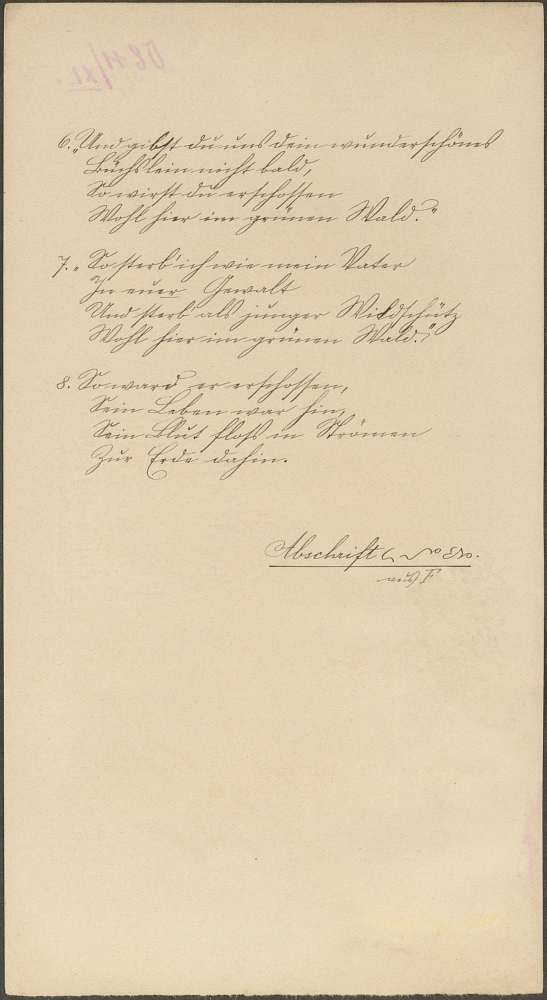 6. „Und gibst du uns dein wunderschönes
Büchslein nicht bald,
So wirst du erschossen
Wohl hier im grünen Wald.“
7. „So sterb' ich wie mein Vater
In euer Gewalt
Und sterb' als junger Wildschütz
Wohl hier im grünen Wald.“
8. So ward er erschossen,
Sein Leben war hin,
Sein Blut floss in Strömen
Zur Erde dahin.
Abschrift
aus F